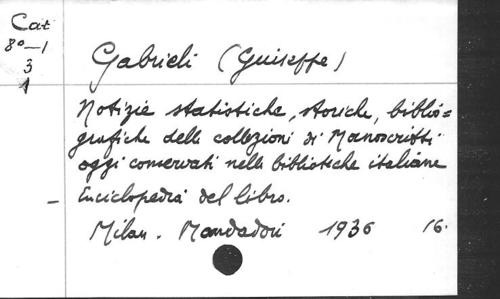 Cat
8°—1
3
1
Gabrieli (Guiseppe)
Notizie statistiche, storiche, biblio=
grafiche delle collezioni di Manoscritti
oggi conservati nelle biblioteche italiane
— Enciclopedia del libro.
Milan. Mondadori 1936 16.